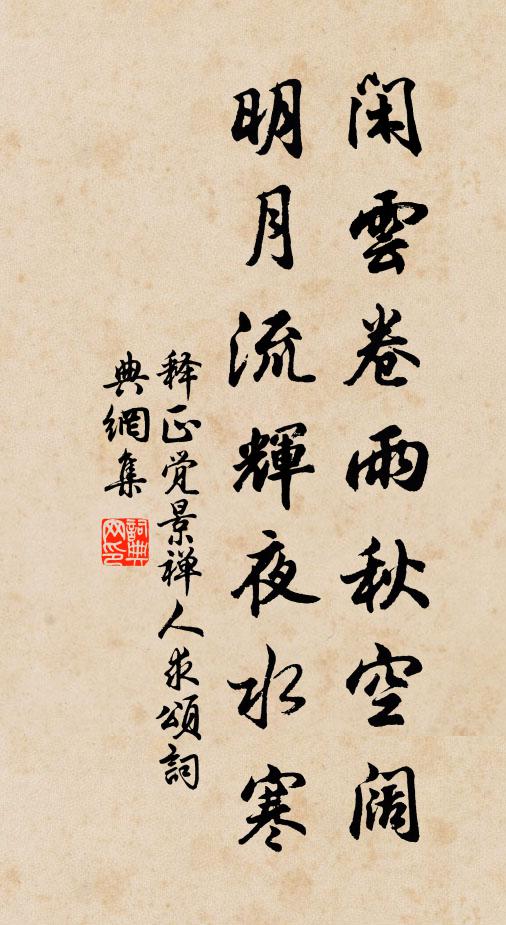 闲雲卷雨秋空阔
明月流輝夜水寒
释正觉景禅人求頌詞
典網集
詞典网印